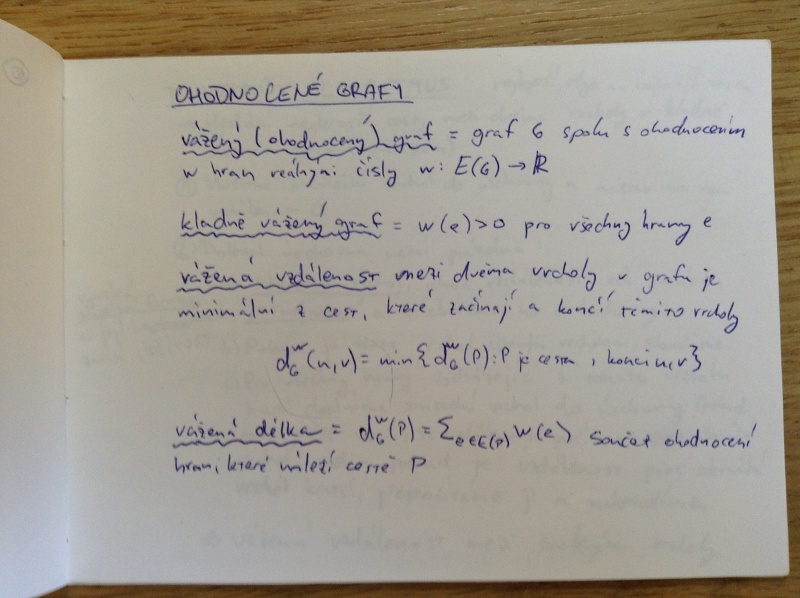 OHODNOCENÉ GRAFY
vážený (ohodnocený) graf = graf G spolu s ohodnocením
w hran reálnými čísly w: E(G) → ℝ
kladně vážený graf = w(e)>0 pro všechny hrany e
vážená vzdálenost mezi dvěma vrcholy v grafu je
minimální z cest, které začínají a končí těmito vrcholy
d_G^w(u,v) = min{d_G^w(P): P je cesta s konci u,v}
vážená délka = d_G^w(P) = Σ_{e∈E(P)} w(e) součet ohodnocení
hran, které náleží cestě P